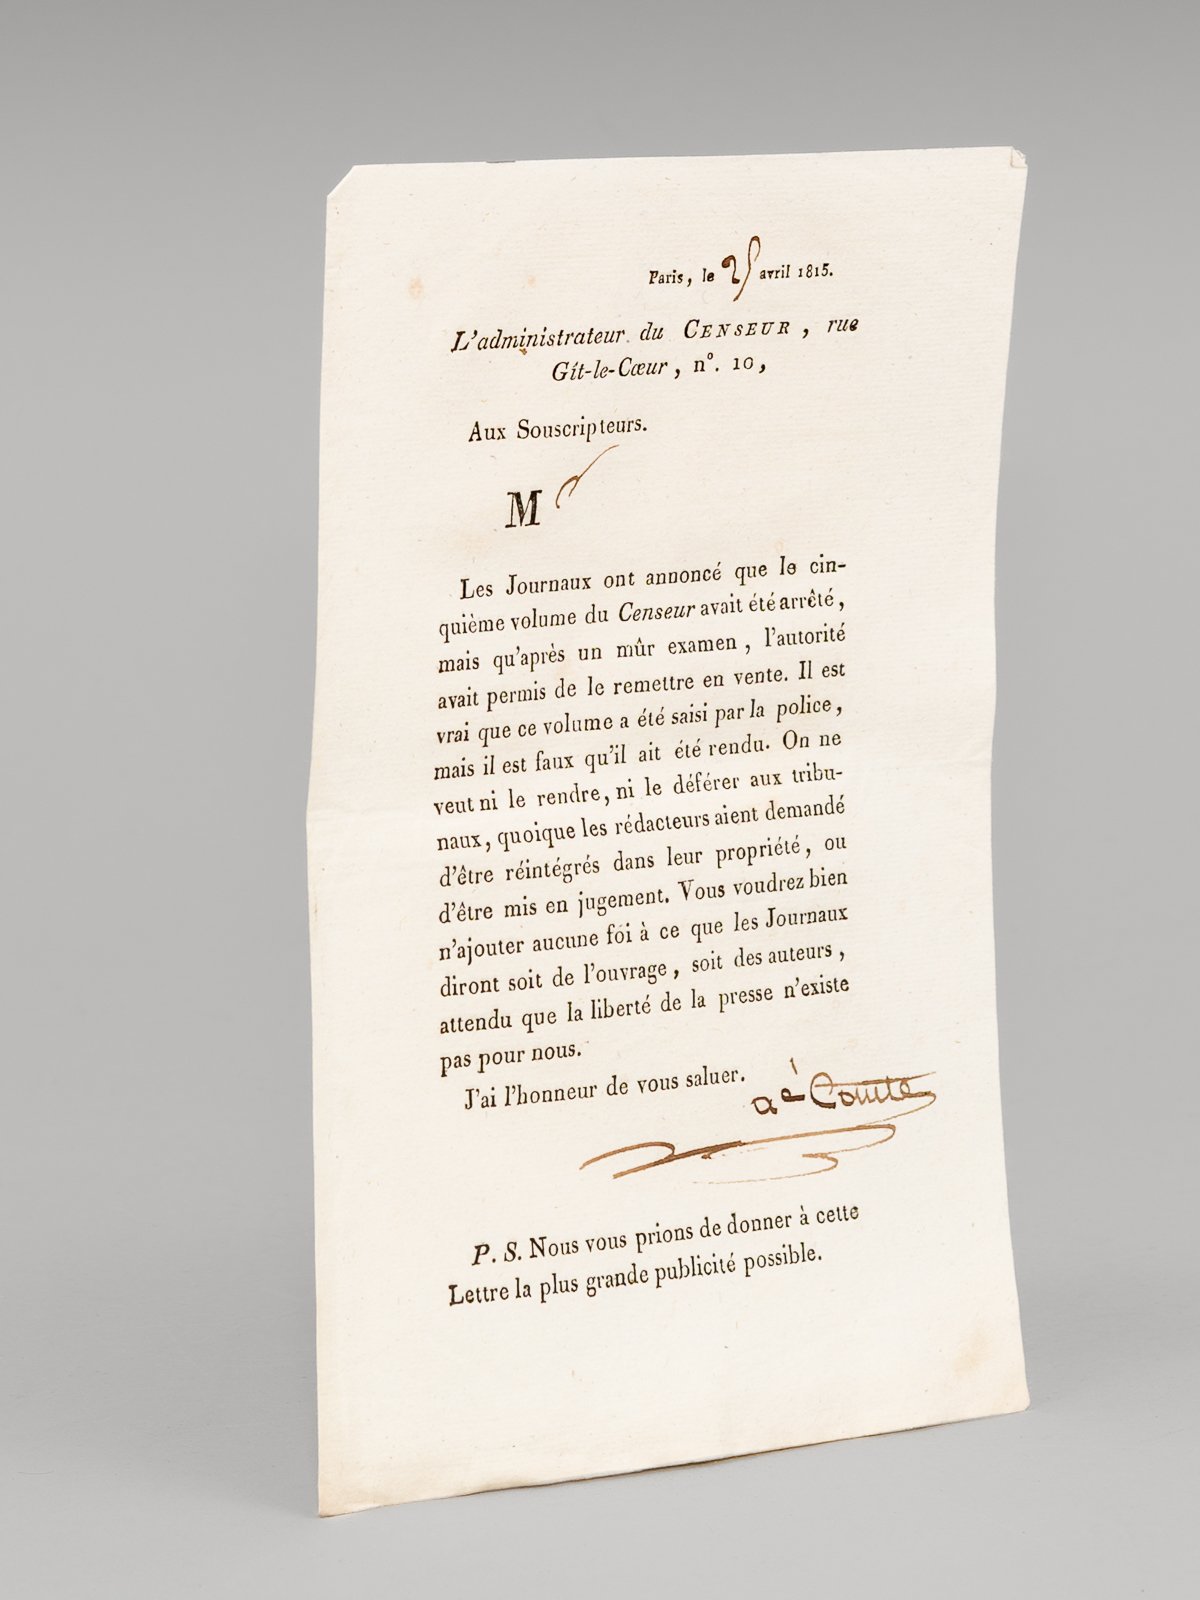 Paris, le 25 avril 1815.
L'administrateur du CENSEUR, rue
Gît-le-Cœur, n°. 10,
Aux Souscripteurs.
M
Les Journaux ont annoncé que le cin-
quième volume du Censeur avait été arrêté,
mais qu'après un mûr examen, l'autorité
avait permis de le remettre en vente. Il est
vrai que ce volume a été saisi par la police,
mais il est faux qu'il ait été rendu. On ne
veut ni le rendre, ni le déférer aux tribu-
naux, quoique les rédacteurs aient demandé
d'être réintégrés dans leur propriété, ou
d'être mis en jugement. Vous voudrez bien
n'ajouter aucune foi à ce que les Journaux
diront soit de l'ouvrage, soit des auteurs,
attendu que la liberté de la presse n'existe
pas pour nous.
J'ai l'honneur de vous saluer.
Comte
P. S. Nous vous prions de donner à cette
Lettre la plus grande publicité possible.